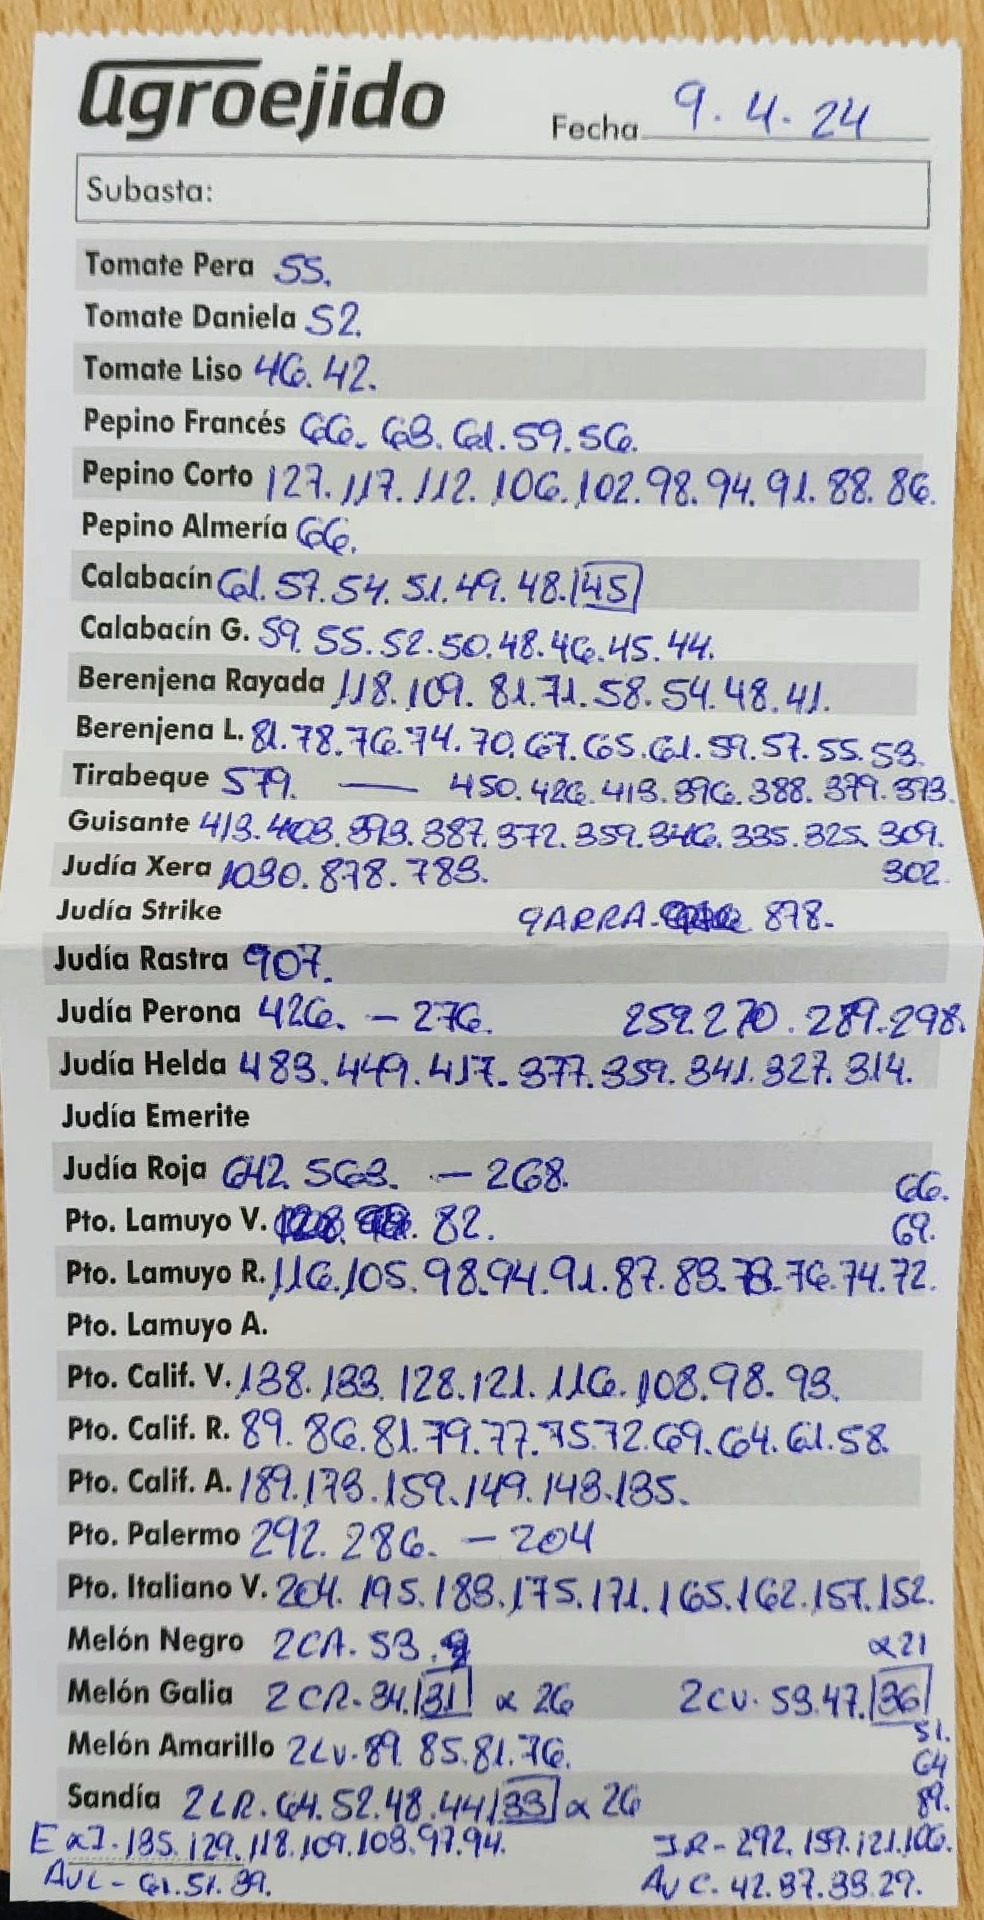 agroejido
Fecha 9.4.24
Subasta:
Tomate Pera 55.
Tomate Daniela 52.
Tomate Liso 46.42.
Pepino Francés 66. 63.61.59.56.
Pepino Corto 127.117.112.106.102.98.94.91.88.86.
Pepino Almería 66.
Calabacín 61.57.54.51.49.48.45
Calabacín G. 59.55.52.50.48.46.45.44.
Berenjena Rayada 118.109.81.71.58.54.48.41.
Berenjena L. 81.78.76.74.70.67.65.61.59.57.55.53.
Tirabeque 579. — 450.426.413.396.388.379.373.
Guisante 413.403.393.387.372.359.346.335.325.309.
Judía Xera 1030.878.783. 302.
Judía Strike GARRA. 878.
Judía Rastra 907.
Judía Perona 426. - 276. 259.270.289.298.
Judía Helda 483.449.417.377.359.341.327.314.
Judía Emerite
Judía Roja 642.563. - 268. 66.
Pto. Lamuyo V. 82. 69.
Pto. Lamuyo R. 116.105.98.94.91.87.83.78.76.74.72.
Pto. Lamuyo A.
Pto. Calif. V. 138.133.128.121.116.108.98.93.
Pto. Calif. R. 89.86.81.79.77.75.72.69.64.61.58.
Pto. Calif. A. 189.173.159.149.143.135.
Pto. Palermo 292.286. - 204
Pto. Italiano V. 204.195.183.175.171.165.162.157.152.
Melón Negro 2CA. 53. α21
Melón Galia 2CR. 34.31 α 26 2CV. 53.47.36
51.
Melón Amarillo 2LV. 89.85.81.76. 64
Sandía 2LR. 64.52.48.44 33 α 26 89.
135.129.118.109.103.97.94. IR - 292.159.121.106.
AVL - 61.51.39. AVC. 42.37.33.29.